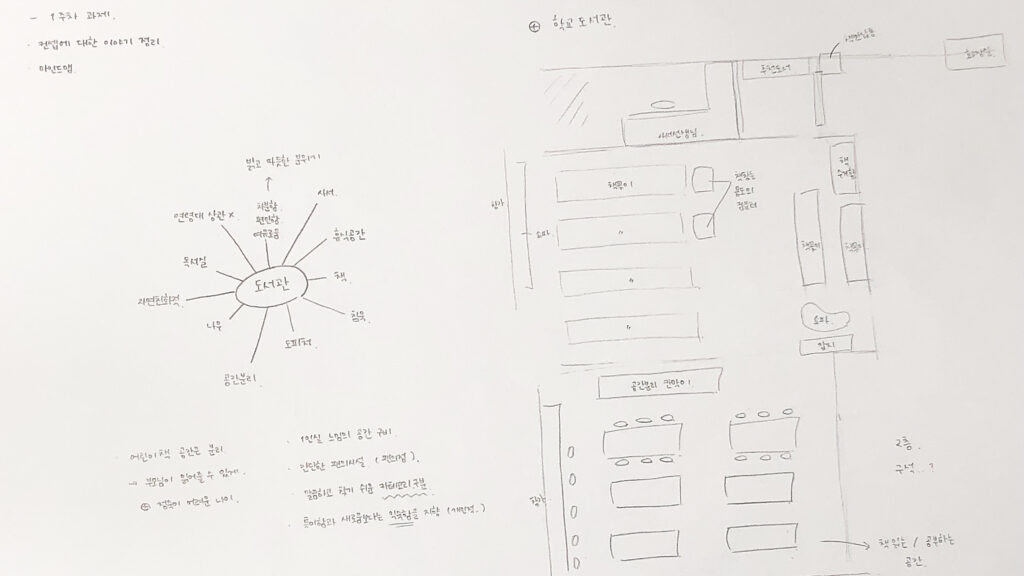 - 1주차 과제.
· 컨셉에 대한 이야기 정리
· 마인드맵.
밝고 따뜻한 분위기
차분함
편안함
여유로움
사서.
연령대 상관 x.
휴식공간
독서실
책.
도서관
자연친화적
침묵.
나무
도피처.
공간분리.
· 어린이 책 공간은 분리
→ 부모님이 읽어줄 수 있게
⊕ 정숙이 어려운 나이.
· 1인실 느낌의 공간 구비.
· 간단한 편의시설 (편의점).
· 깔끔하고 찾기 쉬운 카테고리 구분
· 특이함과 새로움보다는 익숙함을 지향 (개인적..)
⊕ 학교 도서관.
책반납통
화장실.
사서선생님.
책꽂이
〃
〃
〃
책찾는
용도의
컴퓨터
창가
소파.
책
수레함
책꽂이
책꽂이
소파.
잡지
공간분리 칸막이.
창가
2층.
구석..?
책 읽는 / 공부하는
공간.